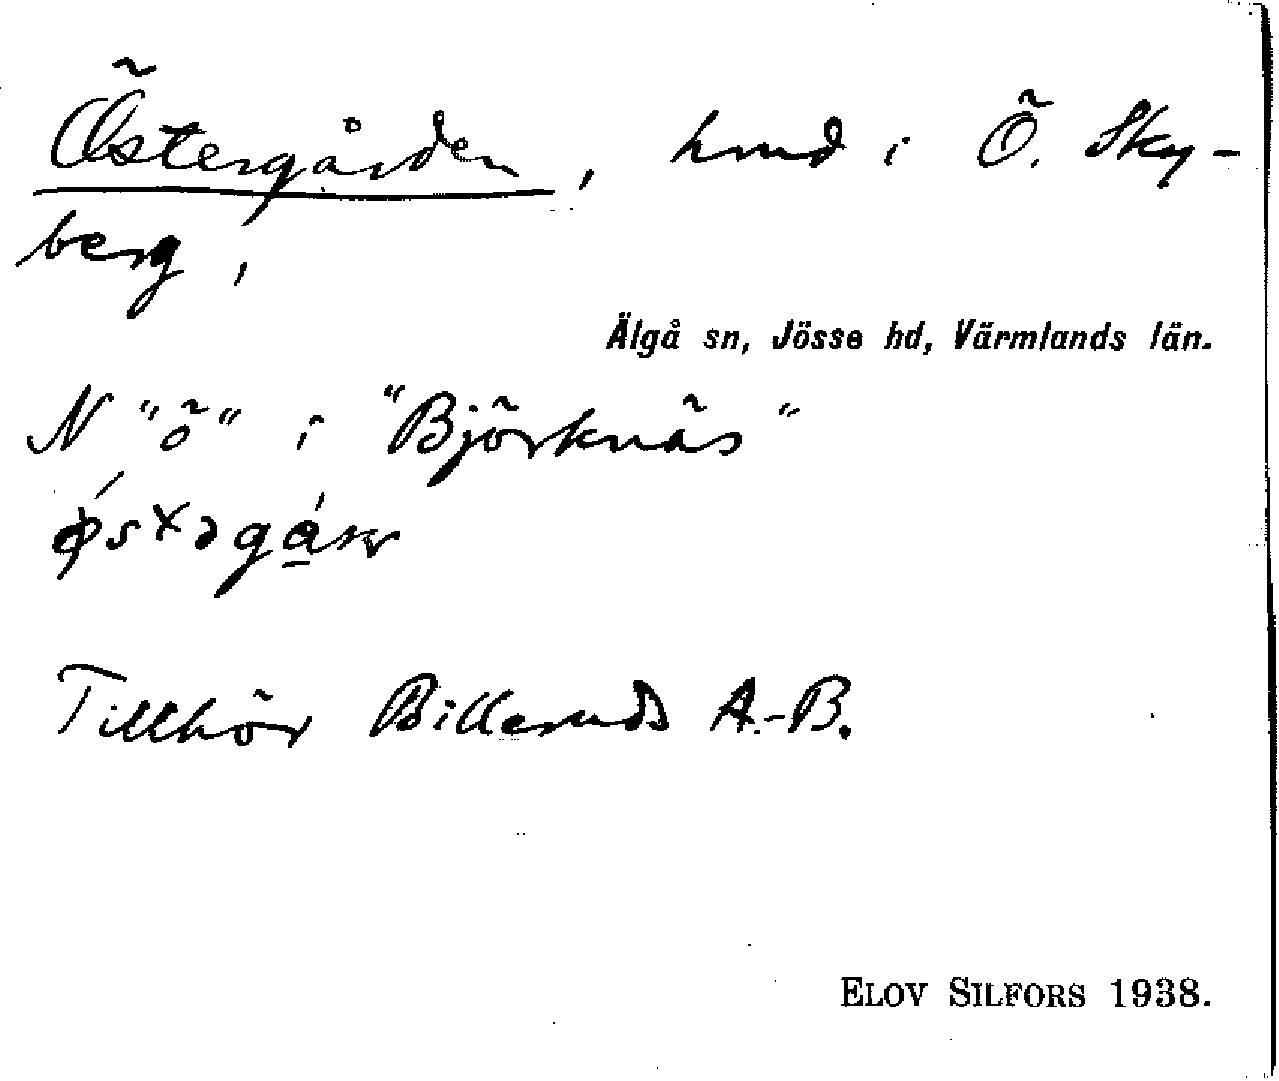 Östergården, hmd i Ö. Sky-
berg,
Älgå sn, Jösse hd, Värmlands län.
N "ö" i "Björknäs"
Tillhör Billeruds A.-B.
ELOV SILFORS 1938.